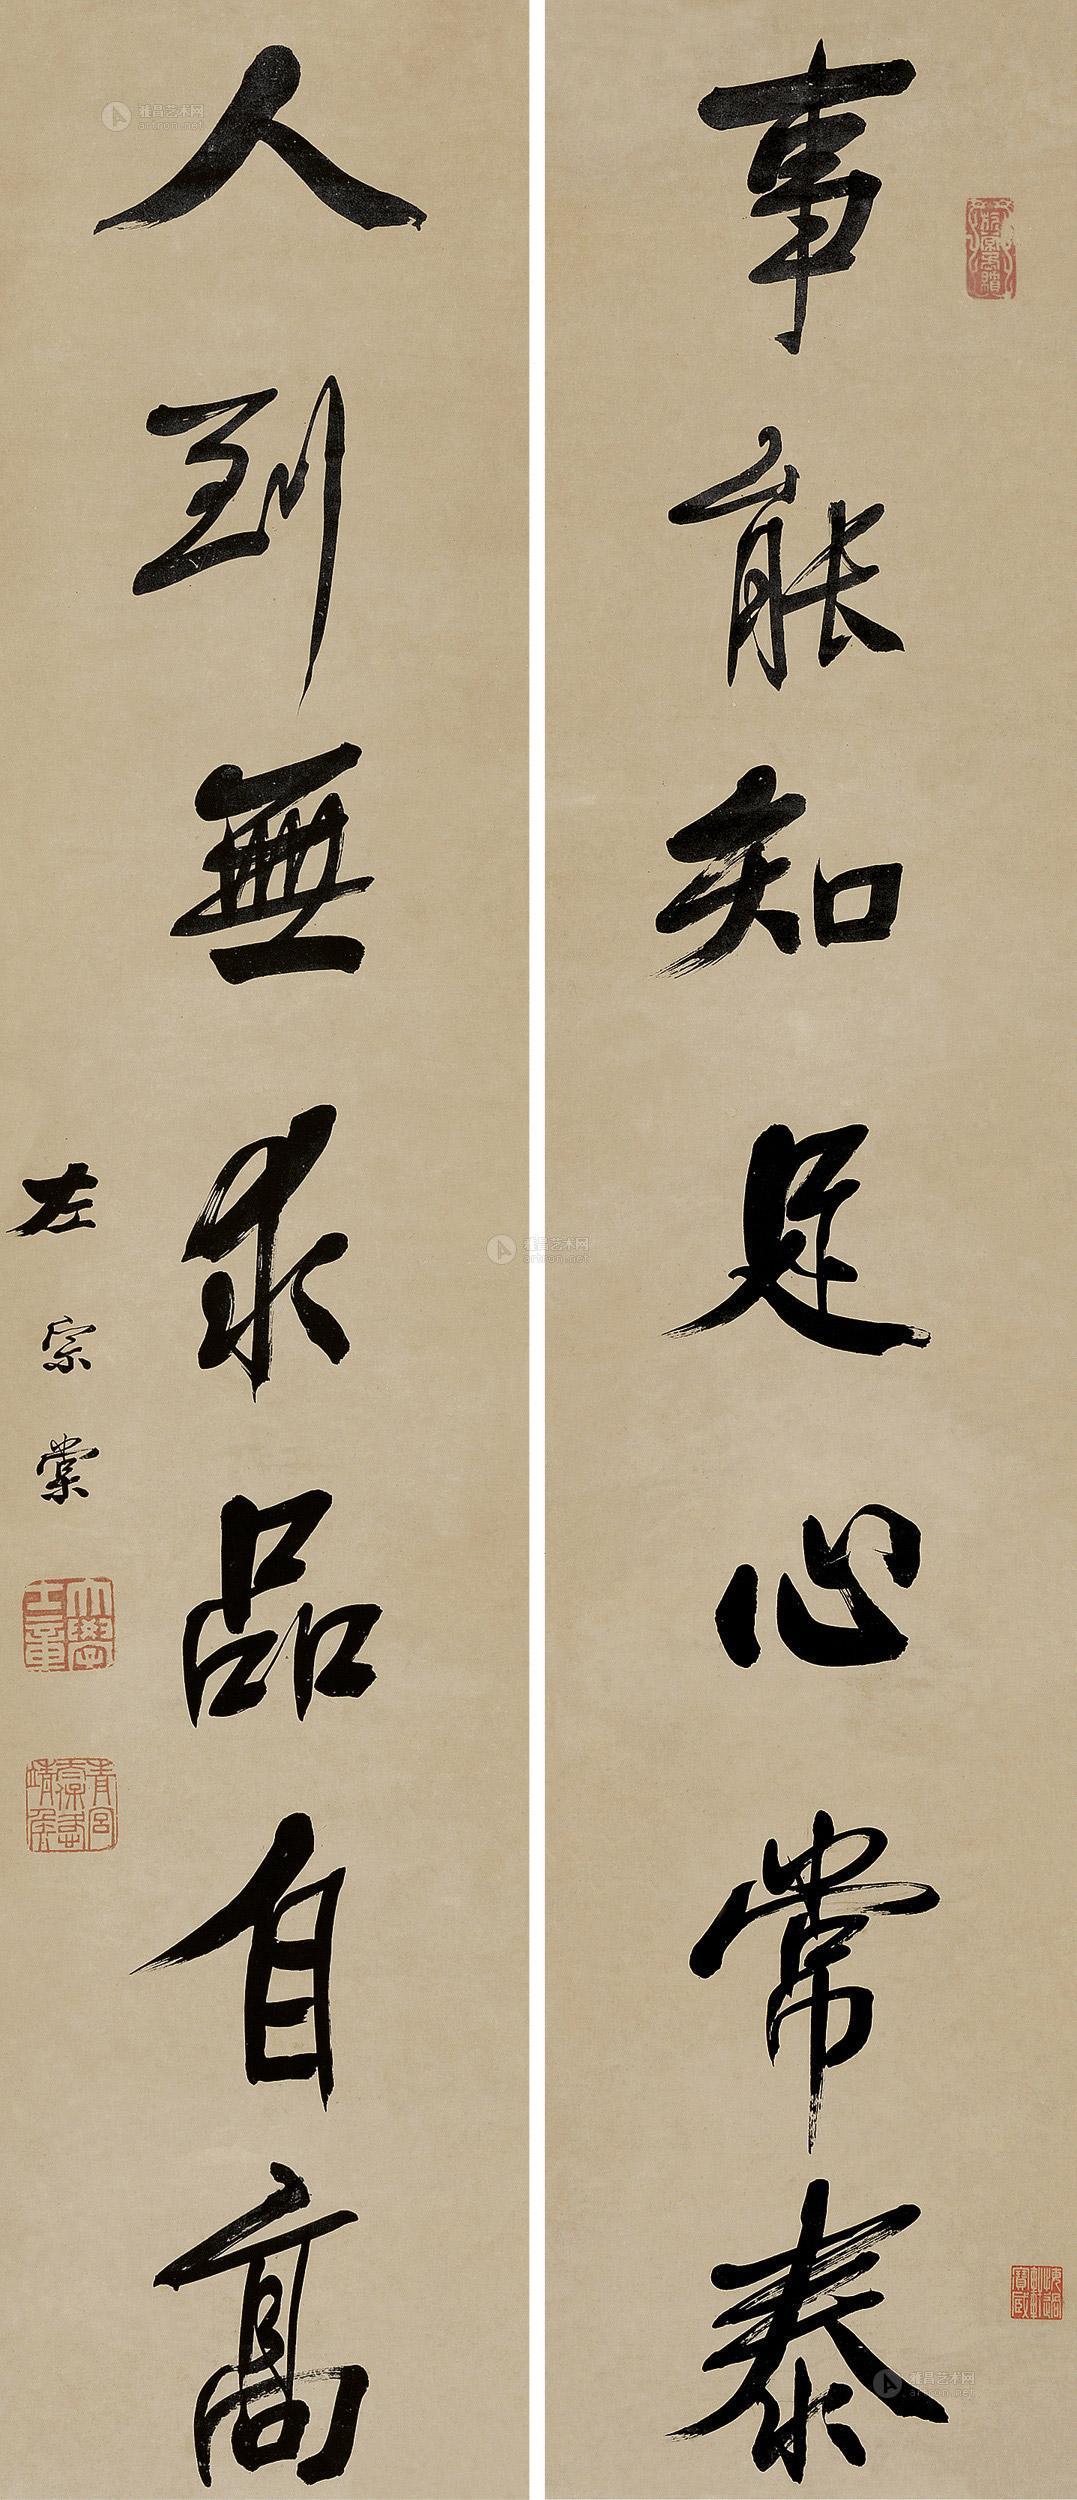 事能知足心常泰
人到無求品自高
左宗棠
大學士章
青宮太保恪靖侯
雅昌艺术网
artron.net
雅昌艺术网
artron.net
雅昌艺术网
artron.net